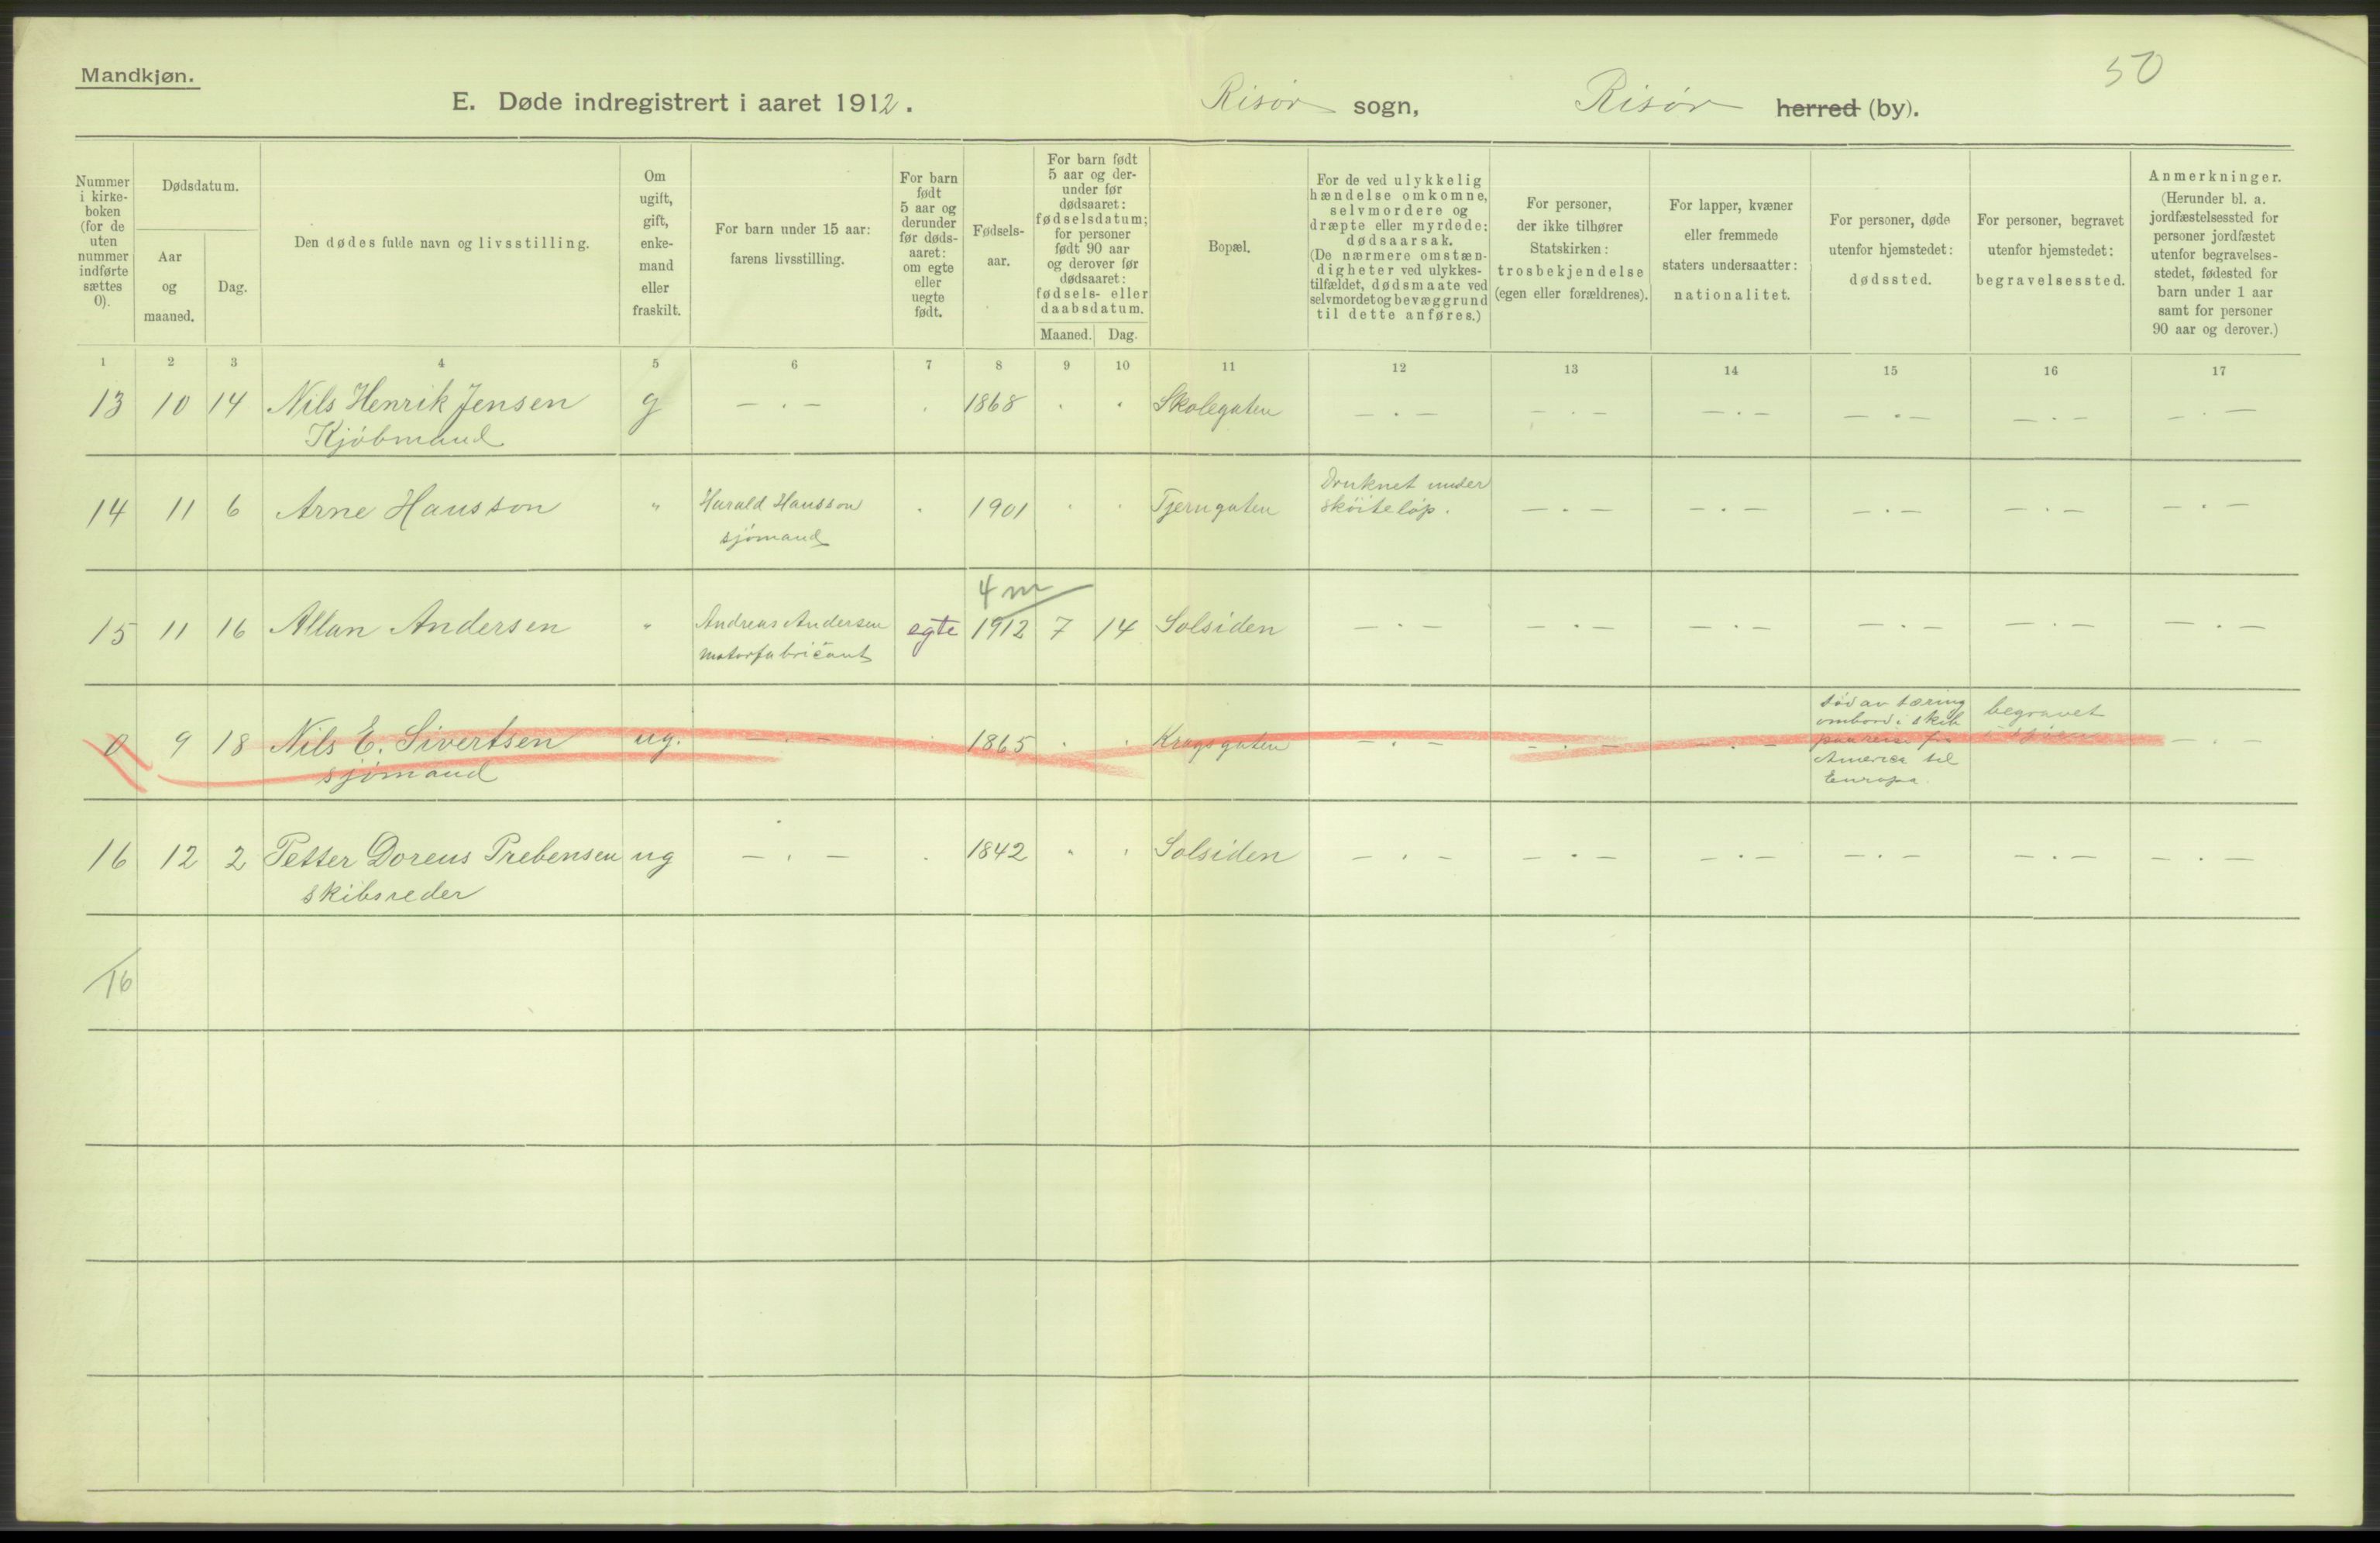 Mandkjøn.
50
E. Døde indregistrert i aaret 1912.
Risør sogn, Risør herred (by).
Nummer i kirke-boken (for de uten nummer indførte sættes 0).
Dødsdatum.
Aar og maaned.
Dag.
Den dødes fulde navn og livsstilling.
Om ugift, gift, enke-mand eller fraskilt.
For barn under 15 aar: farens livsstilling.
For barn født 5 aar og derunder før døds-aaret: om egte eller uegte født.
Fødsels-aar.
For barn født 5 aar og der-under før dødsaaret: fødselsdatum; for personer født 90 aar og derover før dødsaaret: fødsels- eller daabsdatum.
Maaned. Dag.
Bopæl.
For de ved ulykkelig hændelse omkomne, selvmordere og dræpte eller myrdede: dødsaarsak. (De nærmere omstæn-digheter ved ulykkes-tilfældet, dødsmaate ved selvmordet og bevæggrund til dette anføres.)
For personer, der ikke tilhører Statskirken: trosbekjendelse (egen eller forældrenes).
For lapper, kvæner eller fremmede staters undersaatter: nationalitet.
For personer, døde utenfor hjemstedet: dødssted.
For personer, begravet utenfor hjemstedet: begravelsessted.
Anmerkninger. (Herunder bl. a. jordfæstelsessted for personer jordfæstet utenfor begravelses-stedet, fødested for barn under 1 aar samt for personer 90 aar og derover.)
1 2 3 4 5 6 7 8 9 10 11 12 13 14 15 16 17
13 10 14 Nils Henrik Jensen g — . — . 1868 . . Skolegaten — . — — . — — . — — . — — . — — . —
Kjøbmand
14 11 6 Arne Hansson " Harald Hansson . 1901 . . Tjerngaten Druknet under — . — — . — — . — — . — — . —
sjömand skøiteløp.
4 m
15 11 16 Allan Andersen " Andreas Andersen egte 1912 7 14 Solsiden — . — — . — — . — — . — — . — — . —
motorfabricant
0 9 18 Nils E. Sivertsen ug. — . — . 1865 . . Kragsgaten — . — — . — — . — — . —
sjømand
død av tæring
ombord i skib
paa reise fra
America til
Europa.
begravet
i sjøen
16 12 2 Petter Doreus Prebensen ug — . — . 1842 . . Solsiden — . — — . — — . — — . — — . — — . —
skibsreder
16